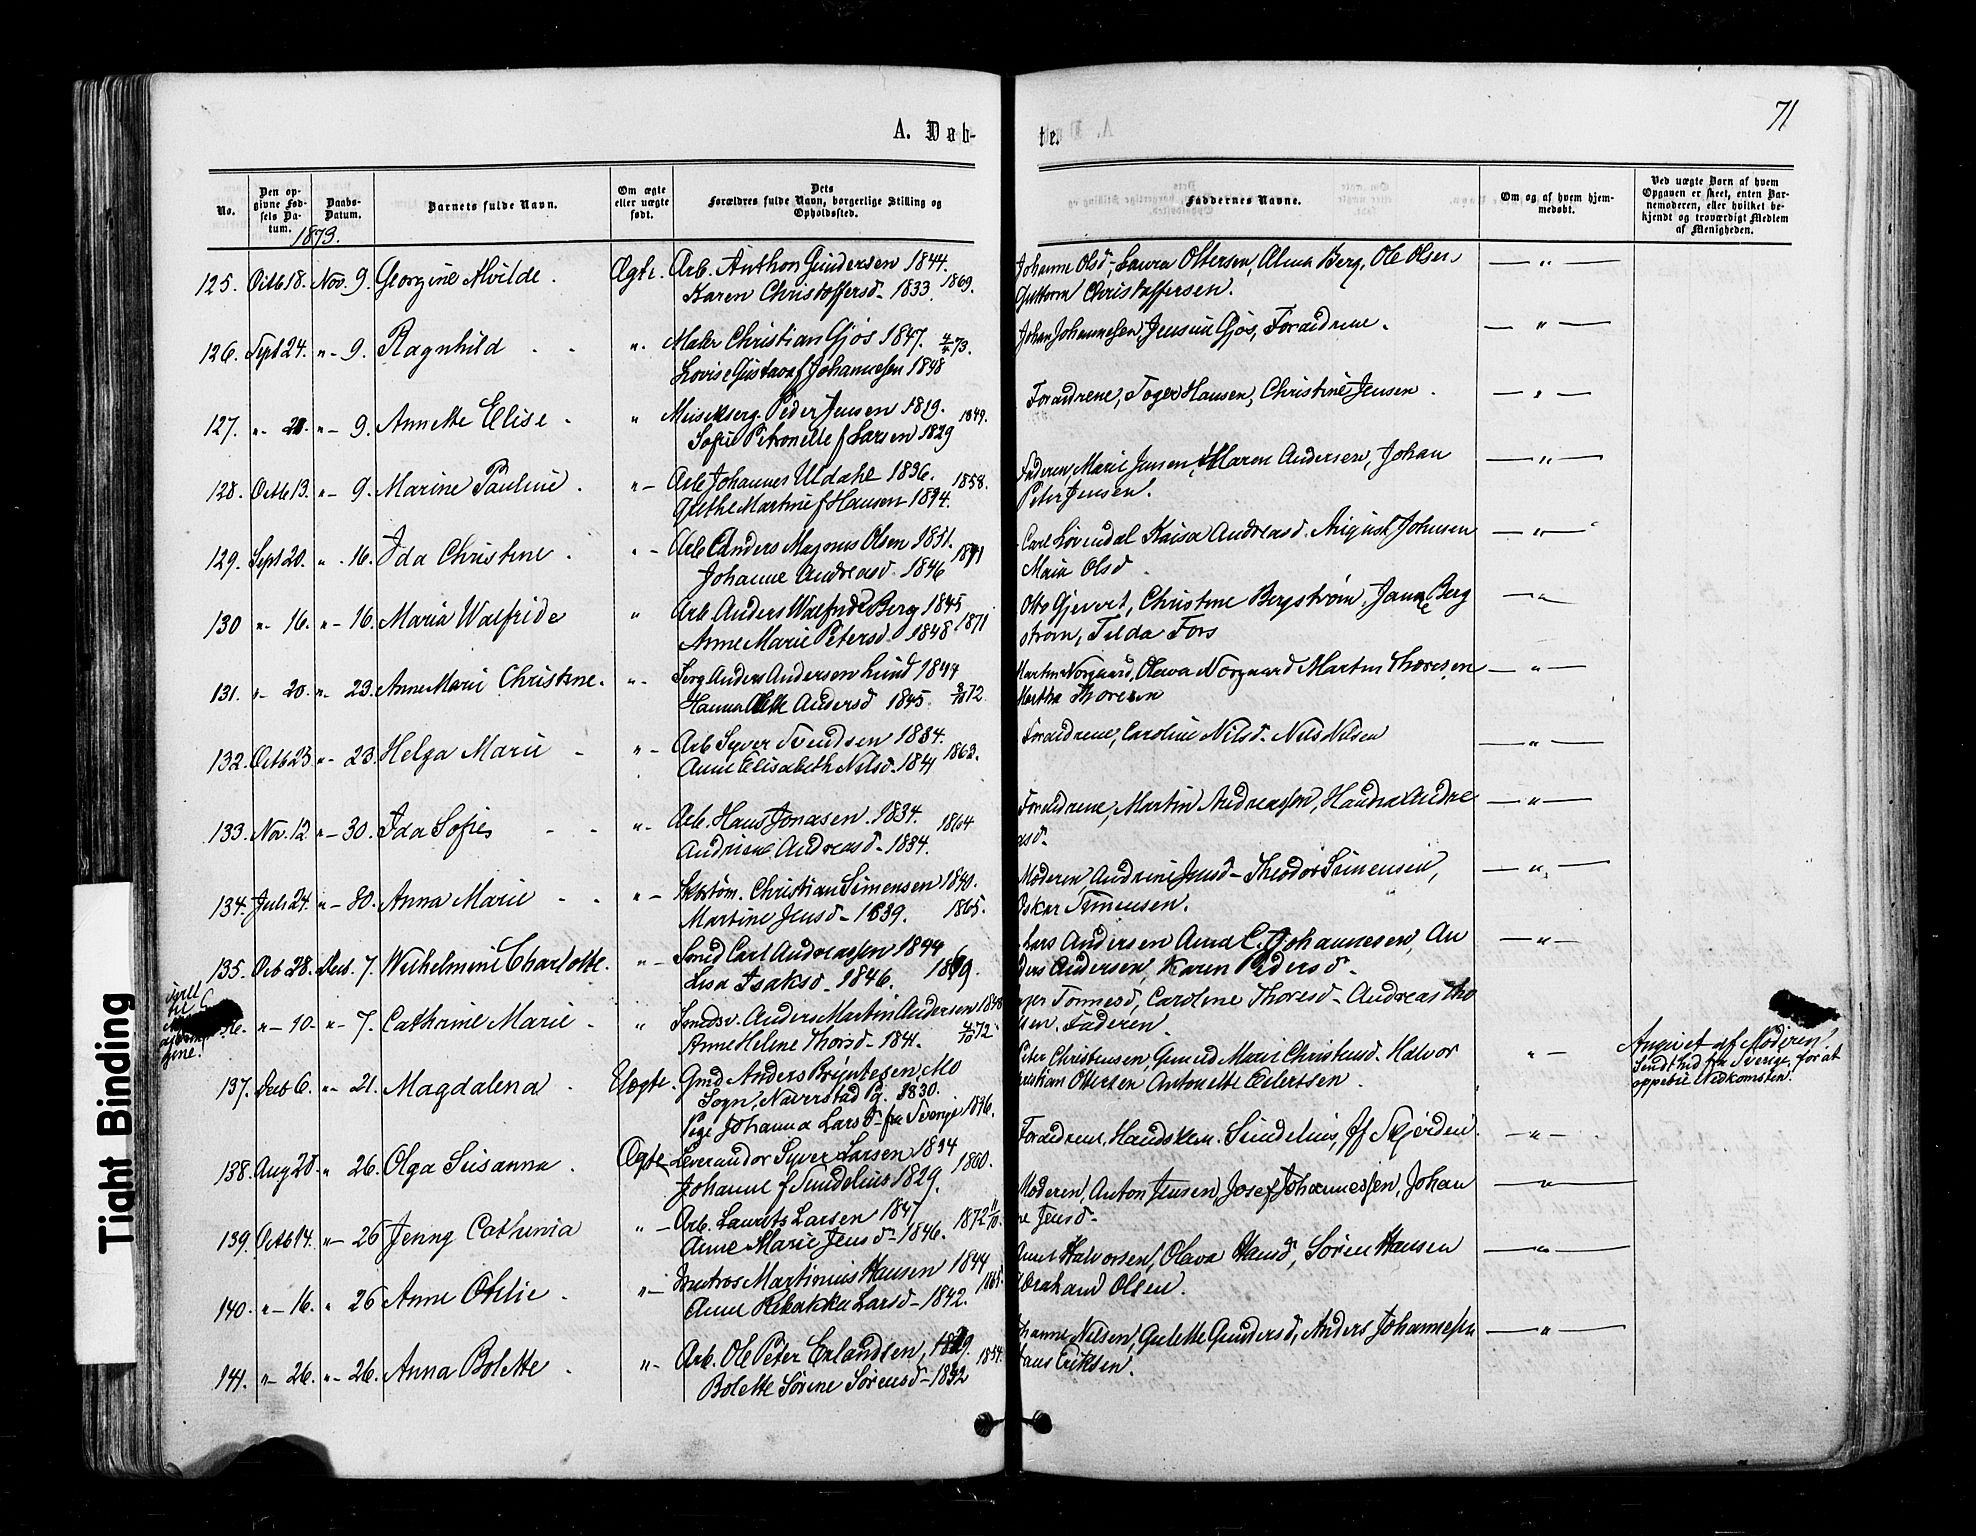 71
A. Døb-
te.
No.
Den op-
givne Fød-
sels Da-
tum.
Daabs-
Datum.
Barnets fulde Navn.
Om ægte
eller uægte
født.
Dets
Forældres fulde Navn, borgerlige Stilling og
Opholdssted.
Faddernes Navne.
Om og af hvem hjem-
medøbt.
Ved uægte Børn af hvem
Opgaven er skeet, enten Bar-
nemoderen, eller hvilket be-
kjendt og troværdigt Medlem
af Menigheden.
1873.
125. Octb 18. Nov. 9. Georgine Alvilde. Ægte. Arb. Anthon Gundersen 1844.
Karen Christoffersd. 1833. 1869.
Johanne Olsd., Laura Oltersen, Alma Berg, Ole Olsen
Guttorm Christoffersen.
126. Sept 24. " - 9. Ragnhild " Maler Christian Gjøs 1847.
Lovise Gustava f Johannesen 1848
Johan Johannesen, Jensine Gjøs, Forældrene.
127. " - 9. Annette Elise " Peder Jensen 1819. 1849.
Sofie Petronelle f Larsen 1829
Forældrene, Hansen, Christine Jensen.
128. Octb 13. " - 9. Marine Pauline. " - Arb Johannes Uldahl 1836. 1858.
Grethe Martine f Hansen 1834.
Faderen, Marie Jensen, Maren Andersen, Johan
Peter Jensen.
129. Sept 20. " - 16. Ida Christine. " - Arb Anders Magnus Olsen 1851.
Johanne Andreasd. 1846 1871
Carl Løvendal Kaisa Andreasd. August Johnsen
Maria Olsd.
130 " - 16. " - 16. Maria Walfride " Arb. Anders Walfrid Berg 1845
Anne Marie Petersd. 1848 1871
Otto Gjevert, Christine Bergstrøm, Berg
strøm, Tilda Fors
131. " - 20. " - 23. Anne Marie Christine. " - Serg. Anders Andersen Lund 1844
Andersd 1845.
Martin Norgaard, Olava Norgaard Martin Thoresen
Martha Thoresen
132. Octb 23 " - 23. Helga Marie " - Arb Syver Svendsen 1834.
Anne Elisabeth Nilsd. 1841 1863.
Forældrene, Caroline Nilsd. Nils Nilsen
133. Nov. 12 " - 30. Ida Sofie " - Arb. Hans Jonasen. 1834. 1864
Andrine Andreasd. 1834.
Forældrene, Martin Andreassen, Andre
asd.
134. Juli 24. " - 30. Anna Marie " - Christian Simensen 1840.
Martine Jensd. 1839. 1865.
Moderen Andrine Jensd - Theodor Simensen,
Oskar Simensen.
135. Octb 28. Decb. 7. Wilhelmine Charlotte. " - Smed Carl Andreassen 1844
Lisa Isaksd. 1846. 1869.
Lars Andersen Anna C. Johannesen, An
ders Andersen, Karen Pedersd.
" - 10 - " - 7. Cathrine Marie. " Anders Martin Andersen 1848
Anne Helene Thorsd. 1841.
Caroline Thoresd - Andreas Tho
Faderen.
137. Decb 6. " - 21. Magdalena. Uægte. Gmd Anders Bryntesen, Mo
Sogn, Naverstad Pg. 1830.
Pige Johanna Larsd - fra Sverige 1836.
Peter Christensen, Halvor
Ottersen Antonette Eilertsen.
Angivet af Moderen.
Sendt hid fra Sverige, for at
oppebie Nedkomsten.
138. Aug 28. " 26. Olga Susanna. Ægte - Leverandør Syver Larsen 1834
Johanne f Sundelius 1829. 1860.
Forældrene, Handskem. Sundelius,
139. Octb 14. " - 26 Jenny Cathinca " - Arb. Laurits Larsen 1847
Anne Marie Jensd - 1846. 1872
Moderen, Anton Jensen, Josef Johannessen, Johan
ne Jensd.
140. " - 16. " 26 Anne Othilie. " - Martinius Hansen 1844
Anne Rebekka Larsd - 1842. 1865.
Halvorsen, Olava Hansd, Søren Hansen
Abraham Olsen.
141. " - 26. " - 26. Anna Bolette. " - Arb. Ole Peter Erlandsen, 1829. 1854.
Bolette Sørine Sørensd - 1832
Nilsen, Gulette Gundersd, Anders Johannesen
Hans Eriksen.
Tight Binding